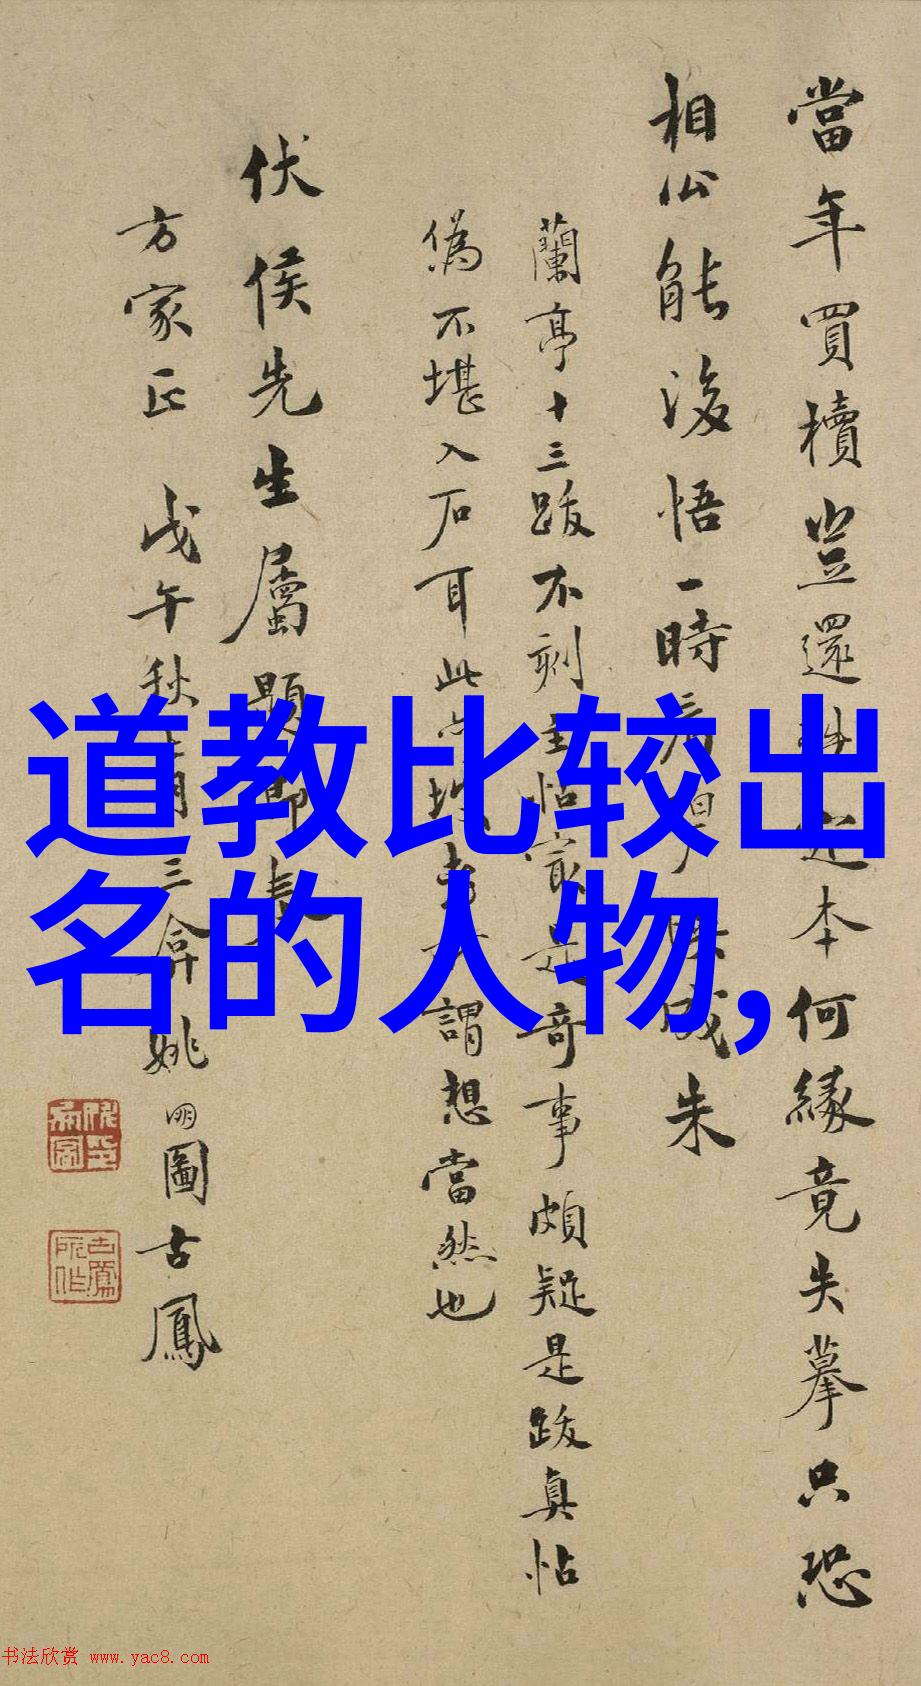 當年買櫝豈還
本何緣竟失摹只恐
相公能後悟一時
成朱
蘭亭十三跋不刻
奇事頗疑是跋真帖
偽不堪入石耳此
謂想當然也
伏侯先生屬題即
方家正 戊午秋 月三
姚 圖古鳳
道教比较出
名的人物,
书法欣赏 www.yac8.com